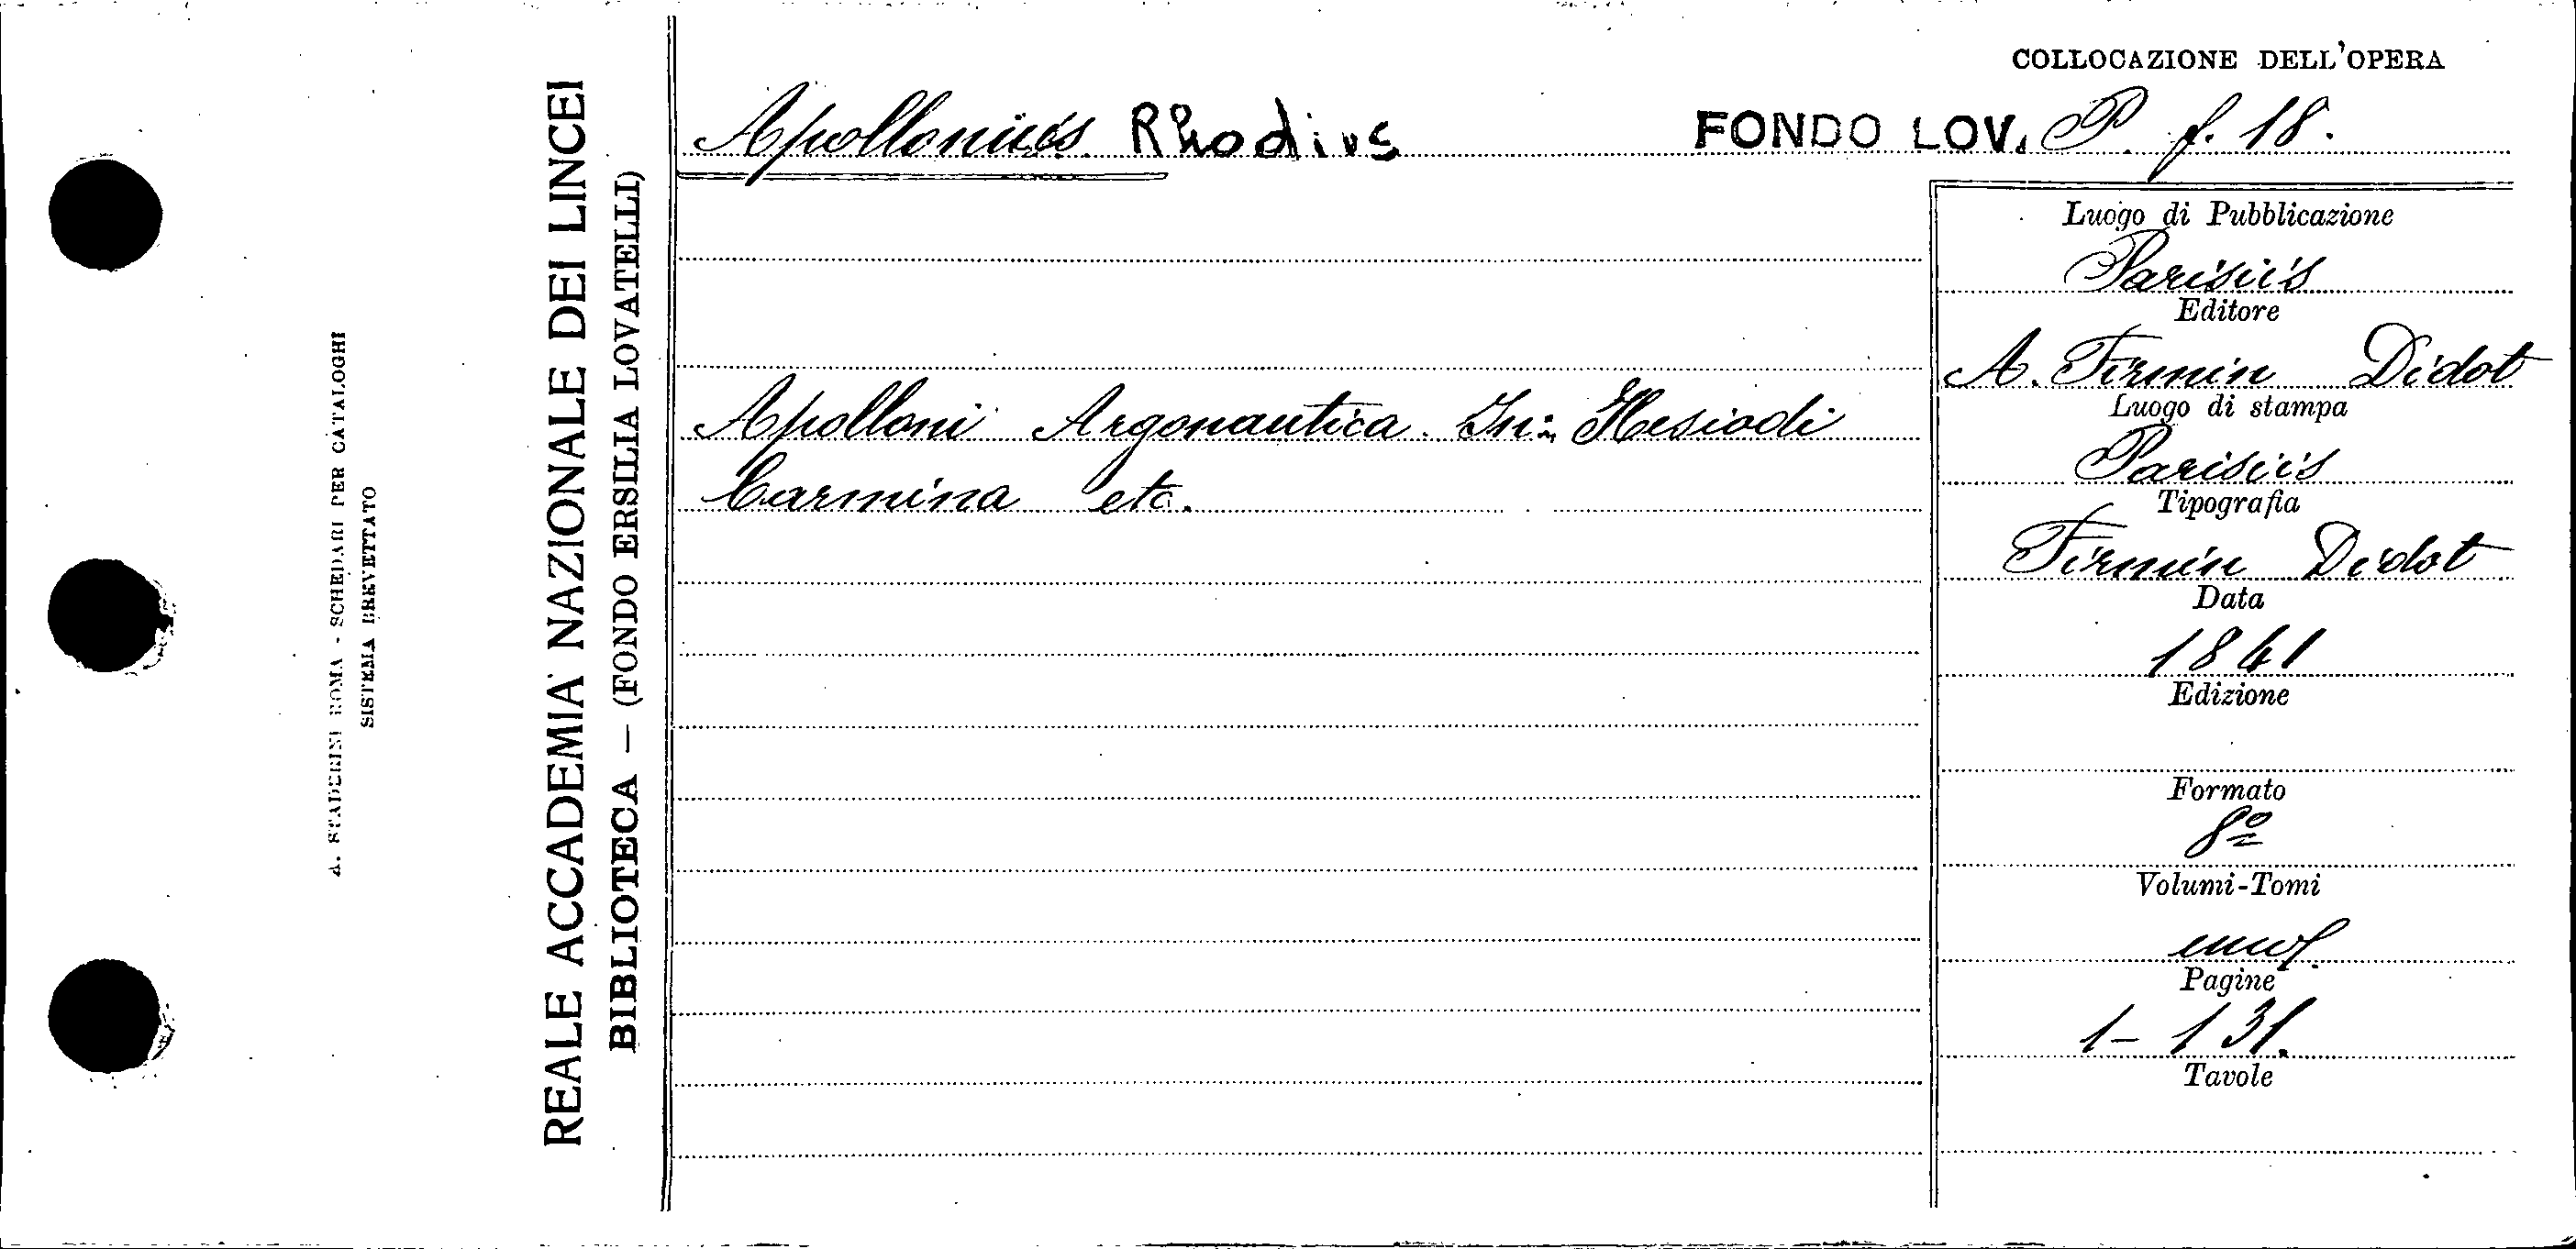 COLLOCAZIONE DELL'OPERA
Apollonius Rhodius
FONDO LOV. P. f. 18.
Apolloni Argonautica. In: Hesiodi
Carmina etc.
Luogo di Pubblicazione
Parisiis
Editore
A. Firmin Didot
Luogo di stampa
Parisiis
Tipografia
Firmin Didot
Data
1841
Edizione
Formato
8º
Volumi-Tomi
Pagine
1-131.
Tavole
REALE ACCADEMIA NAZIONALE DEI LINCEI
BIBLIOTECA — (FONDO ERSILIA LOVATELLI)
A. STADERINI ROMA - SCHEDARI PER CATALOGHI
SISTEMA BREVETTATO